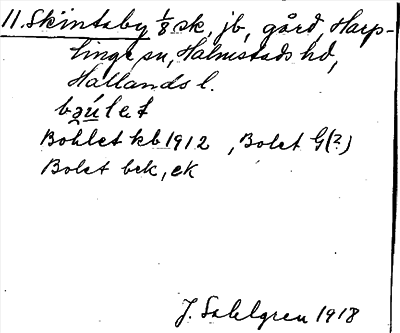 11. Skintaby 1/8 sk, jb, gård, Harp-
linge sn, Halmstads hd,
Hallands l.
bǫúlet
Bohlet kb 1912, Bolet G(?)
Bolet bek, ek
J. Sahlgren 1918